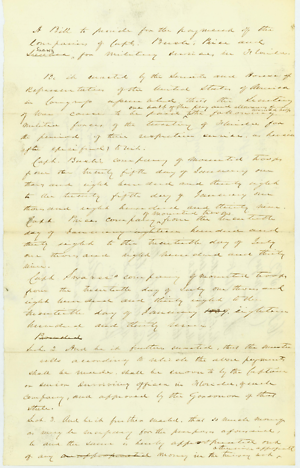 A Bill to provide for the payment of the
Companies of Capts. Bush, Price and
Suarez, for military services in Florida
Be it enacted by the Senate and House of
Representatives of the United States of America
in Congress assembled, that the Secretary
of War cause to be paid the following
Militia forces of the territory of Florida for
the periods of their respective service, as herein
after specified, to wit.
Capt. Bush's company of mounted troops
from the twenty fifth day of January one
thousand eight hundred and thirty eight
to the twenty fifth day of January one
thousand eight hundred and thirty nine
of mounted troops
Capt. Price company from the twentieth
day of January eighteen hundred and
thirty eight to the twentieth day of July
one thousand eight hundred and thirty
Capt. company of mounted troops,
from the twentieth day of July one thousand
eight hundred and thirty eight to the
twentieth day of January eighteen
hundred and thirty nine.
Provided
Sec. 2 And be it further enacted, that the muster
rolls according to which the above payments
shall be made, shall be sworn to by the Captain
or senior surviving officer in Florida, of each
company, and approved by the Governor of that
State.
Sec. 3 And be it further enacted, that so much money
as may be necessary for the purpose aforesaid
be and the same is hereby appropriated out
otherwise appropriated
of any money in the treasury not